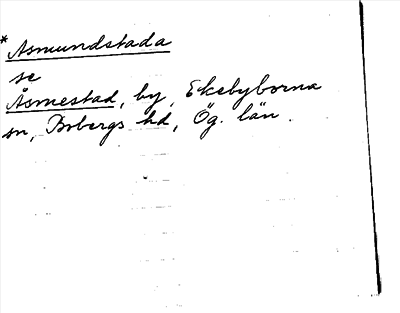 * Asmundstada
se
Åsmestad, by, Ekebyborna
sn, Bobergs hd, Ög. län.